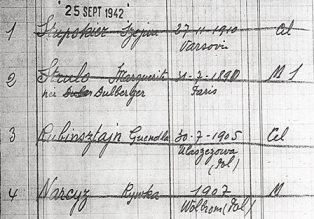 25 SEPT 1942
1 Szajna 27-11-1910 Cel
Varsovi
2 Strulo Marguerit 31-7-1890 M 1
née Dulberger Paris
3 Rubinsztajn Guendla 30-7-1905 Cel
(Pol)
4 Narcyz Rywka 1907 M
Wolbrom (Pol)